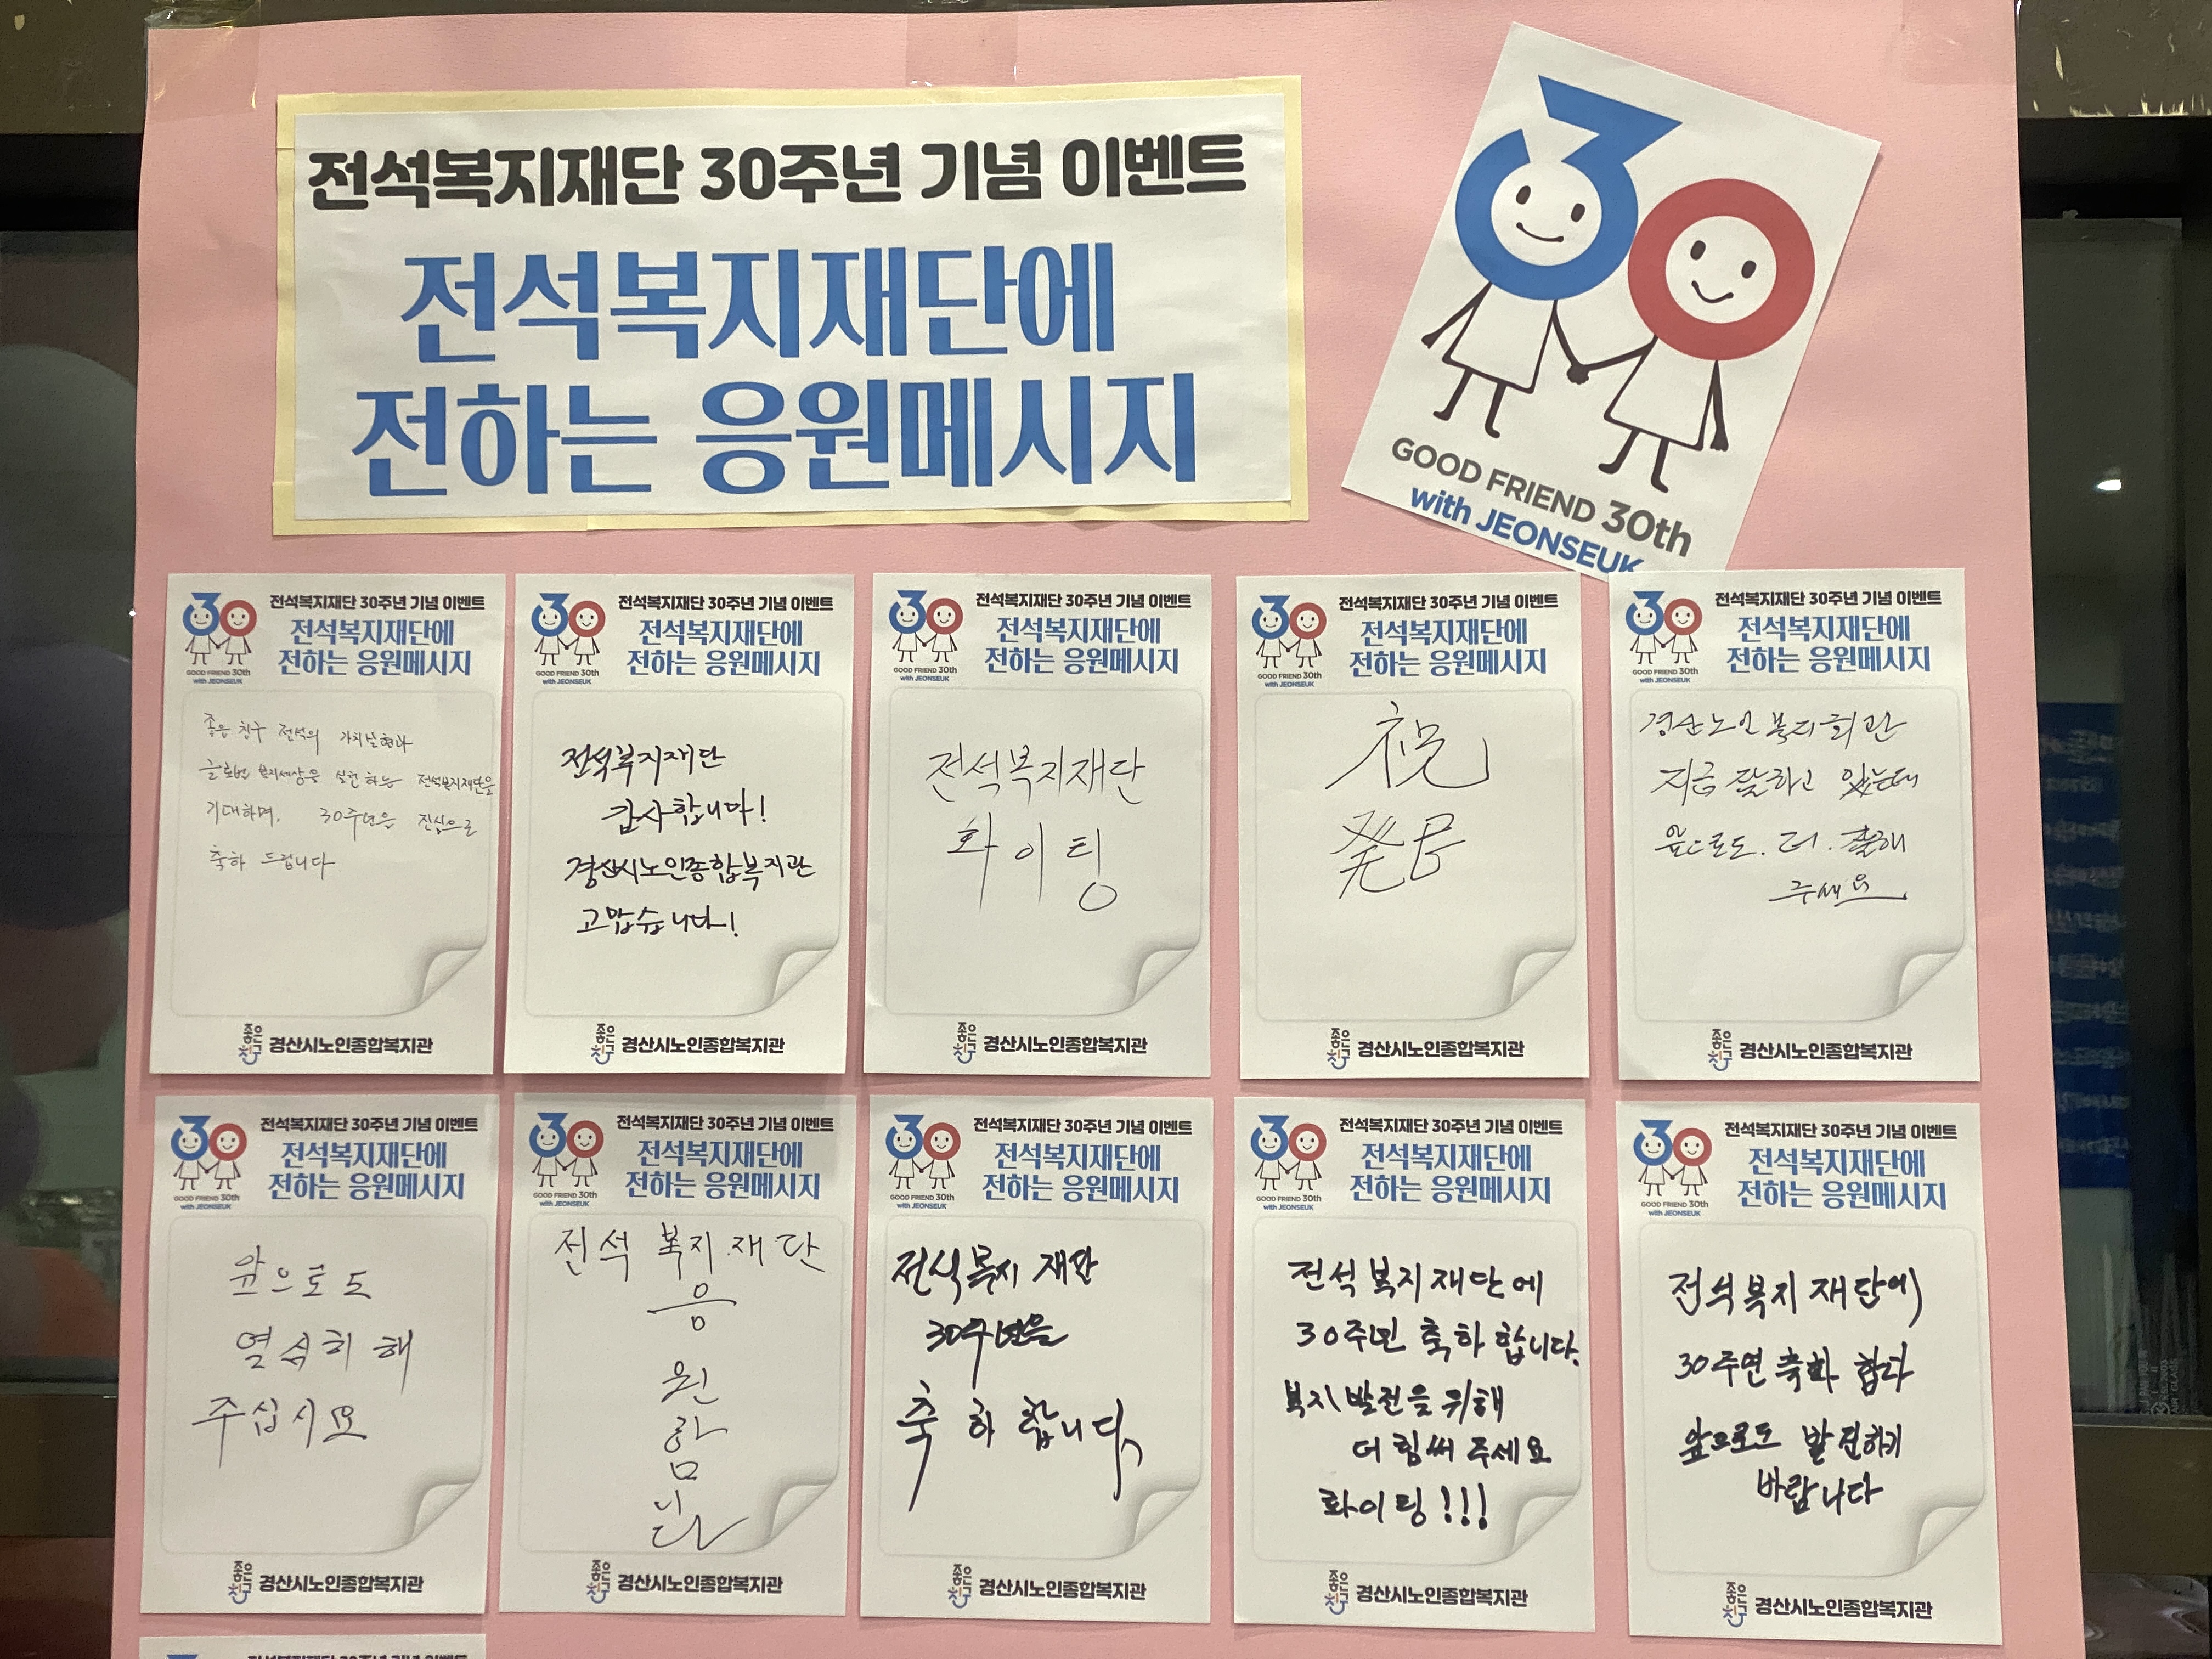 전석복지재단 30주년 기념 이벤트
전석복지재단에
전하는 응원메시지
30
GOOD FRIEND 30th
with JEONSEUK
30
GOOD FRIEND 30th
with JEONSEUK
전석복지재단 30주년 기념 이벤트
전석복지재단에
전하는 응원메시지
좋은 친구 전석의 가치실현과
글로벌 복지세상을 실현하는 전석복지재단을
기대하며, 30주년을 진심으로
축하 드립니다.
좋은친구 경산시노인종합복지관
30
GOOD FRIEND 30th
with JEONSEUK
전석복지재단 30주년 기념 이벤트
전석복지재단에
전하는 응원메시지
전석복지재단
감사합니다!
경산시노인종합복지관
고맙습니다!
좋은친구 경산시노인종합복지관
30
GOOD FRIEND 30th
with JEONSEUK
전석복지재단 30주년 기념 이벤트
전석복지재단에
전하는 응원메시지
전석복지재단
화이팅
좋은친구 경산시노인종합복지관
30
GOOD FRIEND 30th
with JEONSEUK
전석복지재단 30주년 기념 이벤트
전석복지재단에
전하는 응원메시지
祝
좋은친구 경산시노인종합복지관
30
GOOD FRIEND 30th
with JEONSEUK
전석복지재단 30주년 기념 이벤트
전석복지재단에
전하는 응원메시지
경산노인복지회관
지금 잘하고 있는데
앞으로도. 더. 잘해
주세요
좋은친구 경산시노인종합복지관
30
GOOD FRIEND 30th
with JEONSEUK
전석복지재단 30주년 기념 이벤트
전석복지재단에
전하는 응원메시지
앞으로도
열심히 해
주십시요
좋은친구 경산시노인종합복지관
30
GOOD FRIEND 30th
with JEONSEUK
전석복지재단 30주년 기념 이벤트
전석복지재단에
전하는 응원메시지
전석 복지재단
응
원
함
니
다
좋은친구 경산시노인종합복지관
30
GOOD FRIEND 30th
with JEONSEUK
전석복지재단 30주년 기념 이벤트
전석복지재단에
전하는 응원메시지
전석복지 재단
30주년을
축하합니다
좋은친구 경산시노인종합복지관
30
GOOD FRIEND 30th
with JEONSEUK
전석복지재단 30주년 기념 이벤트
전석복지재단에
전하는 응원메시지
전석복지재단에
30주년 축하합니다.
복지발전을 위해
더 힘써 주세요
화이팅!!!
좋은친구 경산시노인종합복지관
30
GOOD FRIEND 30th
with JEONSEUK
전석복지재단 30주년 기념 이벤트
전석복지재단에
전하는 응원메시지
전석복지재단에
30주연 축하 합다
앞으로도 발전하기
바랍니다
좋은친구 경산시노인종합복지관
전석복지재단 30주년 기념 이벤트